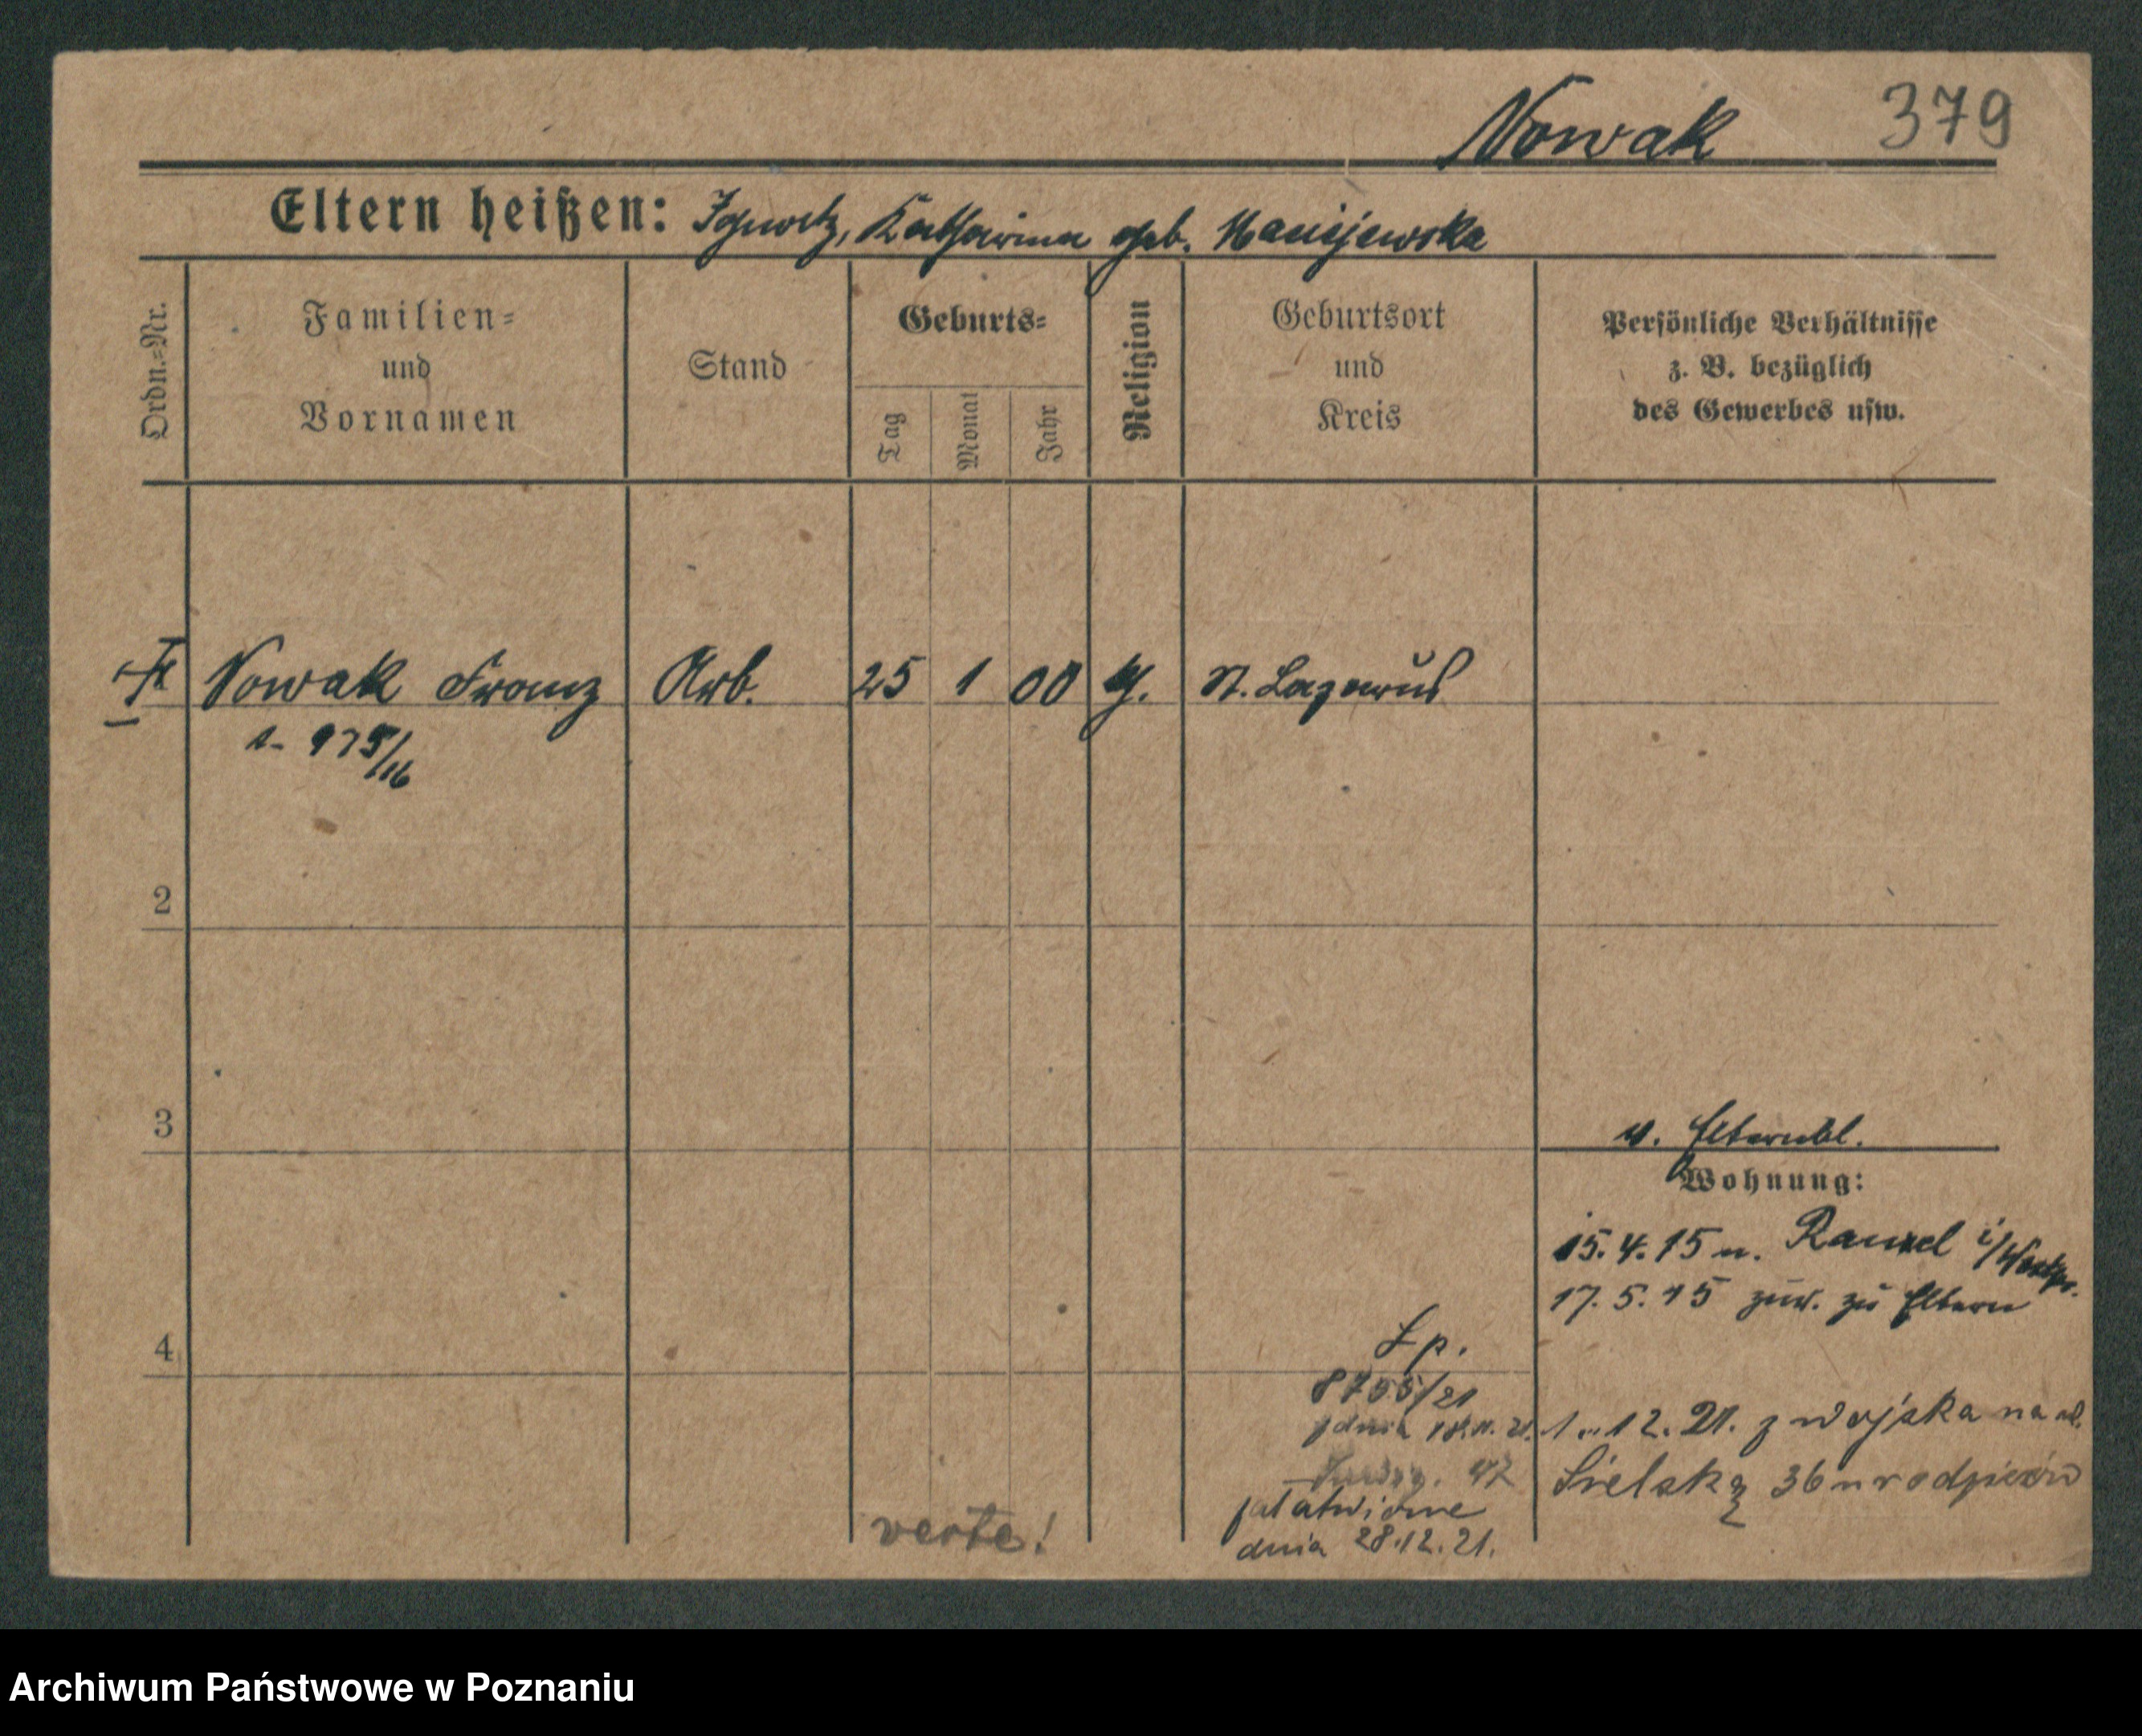 Nowak 379
Eltern heißen: Ignatz, Katharina geb.
Ordn.=Nr.
Familien=
und
Vornamen
Stand
Geburts=
Tag
Monat
Jahr
Religion
Geburtsort
und
Kreis
Persönliche Verhältnisse
z. B. bezüglich
des Gewerbes usw.
Nowak Franz Arb. 25 1 00 St. Lazarus
975/16
2
3
v. Elternbl.
Wohnung:
15.4.15 n.
17.5.15 zur. zu Eltern
4
8755/21
z dnia
1.12.21. z wojska na ul.
Sielską 36
załatwione
dnia 28.12.21.
verte!
Archiwum Państwowe w Poznaniu